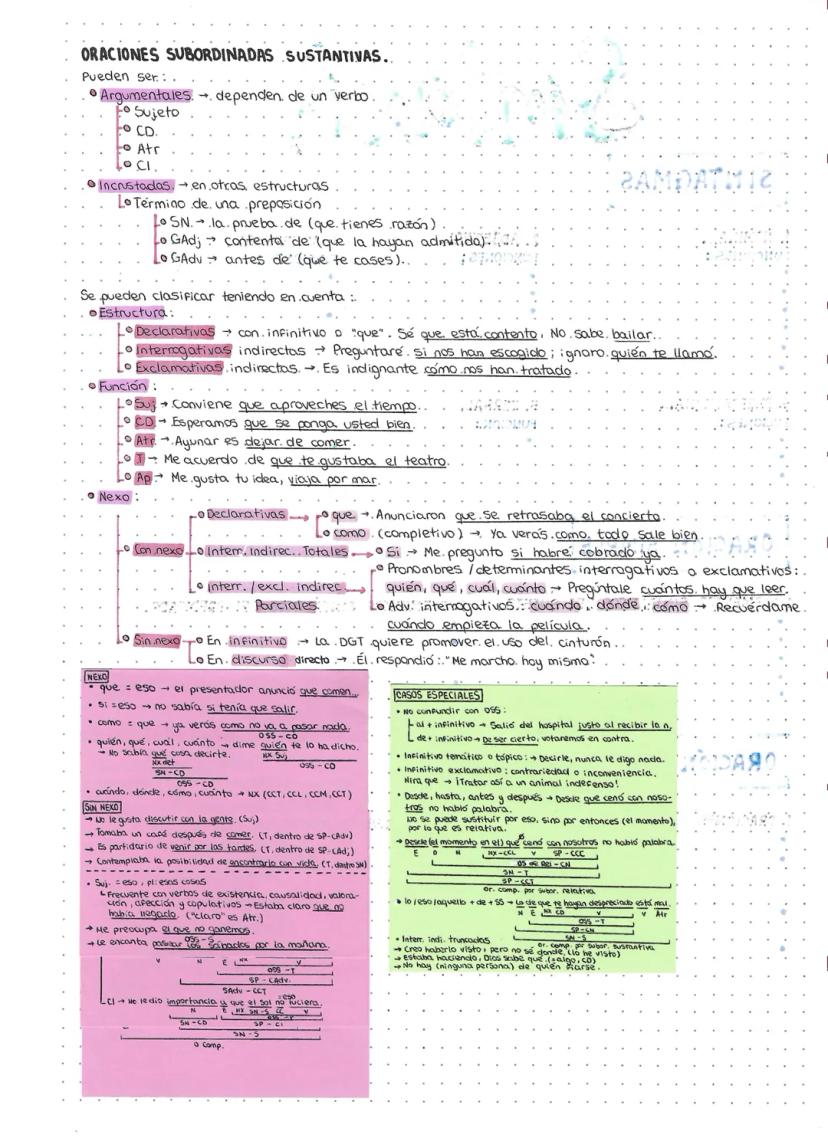 ORACIONES SUBORDINADAS SUSTANTIVAS.
Pueden ser:
Argumentales → dependen de un verbo
Sujeto
CD
Atr
CI
Incrustadas → en otras estructuras
Término de una preposición
SN → la prueba de (que tienes razón)
GAdj → contenta de (que la hayan admitido).
GAdv → antes de (que te cases).
Se pueden clasificar teniendo en cuenta:
Estructura:
Declarativas → con infinitivo o "que". Sé que está contento, No sabe bailar.
Interrogativas indirectas → Preguntaré si nos han escogido; ignoro quién te llamó.
Exclamativas indirectas → Es indignante cómo nos han tratado.
Función:
Suj → Conviene que aproveches el tiempo.
CD → Esperamos que se ponga usted bien.
Atr → Ayunar es dejar de comer.
T → Me acuerdo de que te gustaba el teatro.
Ap → Me gusta tu idea, viaja por mar.
Nexo:
Declarativas → que → Anunciaron que se retrasaba el concierto.
como (completivo) → Ya verás como todo sale bien
Con nexo Interr. Indirec. Totales → Si → Me pregunto si habré cobrado ya.
Pronombres/determinantes interrogativos o exclamativos:
Interr./excl. indirec → quién, qué, cuál, cuánto → Pregúntale cuántos hay que leer.
Parciales Adv. interrogativos: cuándo, dónde, cómo → Recuérdame
cuándo empieza la película.
Sin nexo En infinitivo → La DGT quiere promover el uso del cinturón.
En discurso directo → Él respondió: "Me marcho hoy mismo".
NEXO
que = eso → el presentador anunció que comen...
si = eso → no sabía si tenía que salir.
como = que → ya verás como no va a pasar nada.
OSS - CD
quién, qué, cuál, cuánto → dime quién te lo ha dicho.
→ No sabía qué cosa decirte. NX Suj
NX det OSS - CD
SN - CD
OSS - CD
cuándo, dónde, cómo, cuánto → NX (CCT, CCL, CCM, CCT)
SIN NEXO
→ No le gusta discutir con la gente. (Suj)
→ Tomaba un café después de comer. (T, dentro de SP-CAdv)
→ Es partidario de venir por las tardes. (T, dentro de SP-CAdj)
→ Contemplaba la posibilidad de encontrarlo con vida. (T, dentro SN)
Suj. = eso, pl: esas cosas
Frecuente con verbos de existencia, causalidad, valora-
ción, afección y copulativos → Estaba claro que no
había llegado. ("claro" es Atr.)
→ Me preocupa el que no ganemos.
OSS - S
→ Le encanta por la mañana.
V N E NX V
OSS - T
SP - CAdv.
SAdv - CCT
=eso
CI → No le dio importancia a que el Sol no luciera.
N E NX SN-S CC V
SN - CD OSS - T
SP - CI
SN - S
O Comp.
CASOS ESPECIALES
No confundir con OSS:
al + infinitivo → Salió del hospital justo al recibir la n.
de + infinitivo → De ser cierto, votaremos en contra.
Infinitivo temático o tópico: → Decirle, nunca le digo nada.
Infinitivo exclamativo: contrariedad o inconveniencia.
Mira que → ¡Tratar así a un animal indefenso!
Desde, hasta, antes y después → Desde que cenó con noso-
tros no habló palabra.
No se puede sustituir por eso, sino por entonces (el momento),
por lo que es relativa.
→ Desde (el momento en el) que cenó con nosotros no habló palabra.
E D N NX - CCL V SP - CCC
OS de Rel - CN
SN - T
SP - CCT
or. comp. por subor. relativa
lo/eso/aquello + de + SS → Lo de que te hayan despreciado está mal.
N E NX CD V V Atr
OSS - T
SP - CN
SN - S
Interr. indi. truncadas or. comp. por subor. sustantiva
→ Creo haberlo visto, pero no sé dónde. (lo he visto)
→ Estaba haciendo, Dios sabe qué. (=algo, CD)
→ No hay (ninguna persona) de quién fiarse.